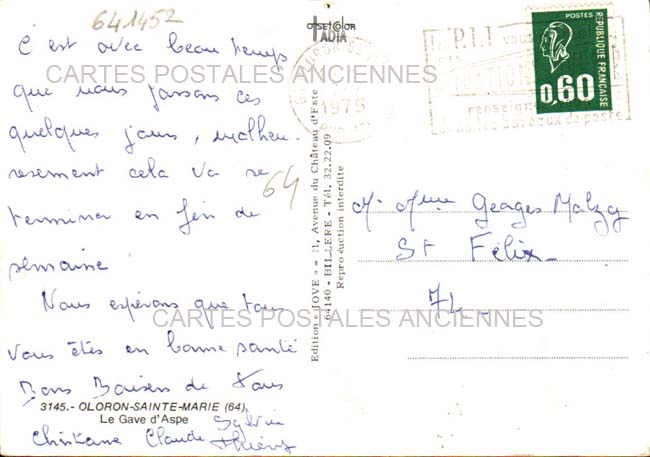 641452
C'est avec beau temps
que nous passons ces
quelques jours, malheu-
resement cela va se
terminer en fin de
semaine
Nous espérons que tous
vous êtes en bonne santé
Bons Baisers de tous
Sylvie
Christiane Claude Thierry
64
3145.- OLORON-SAINTE-MARIE (64)
Le Gave d'Aspe
offset color
IADIA
Edition « JOVE » - 11, Avenue du Château d'Este
64140 - BILLERE - Tél. 32.22.09
Reproduction interdite
1975
P.T.T vous
renseign
bureaux de poste
POSTES
RÉPUBLIQUE FRANÇAISE
0,60
M. Mme Georges
St Félix
74
CARTES POSTALES ANCIENNES
CARTES POSTALES ANCIENNES